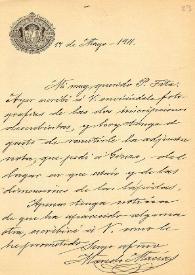 19 de Mayo - 1911.
Mi muy querido P. Fita:
Ayer escribí a V. enviándole foto-
grafías de las dos inscripciones
descubiertas, y hoy tengo el
gusto de remitirle la adjunta
nota, que pedí a          , del
lugar en que están y de las
dimensiones de las lápidas.
Apenas tenga noticia
de que ha aparecido alguna
otra, escribiré a V. como le
he prometido.
Suyo afmo
Marcelo Macías